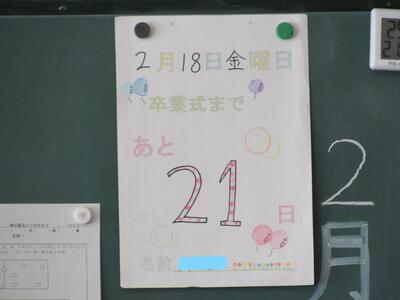 2月18日金曜日
卒業式まで
あと
21
日
名前
2
月